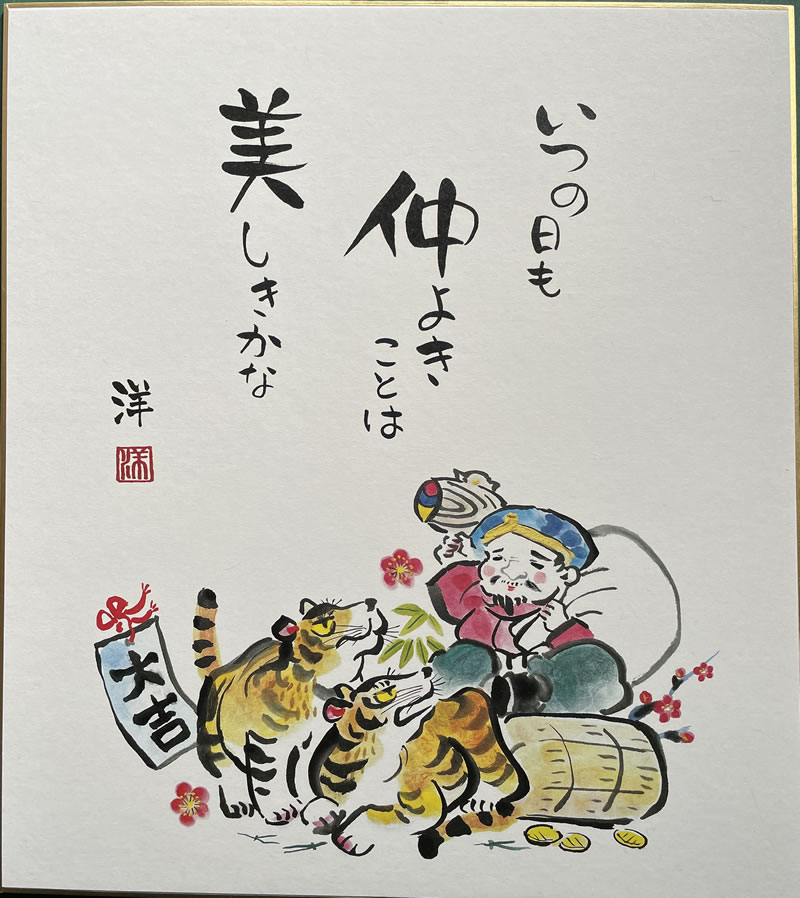 いつの日も
仲よき
ことは
美しきかな
洋
洋
大吉